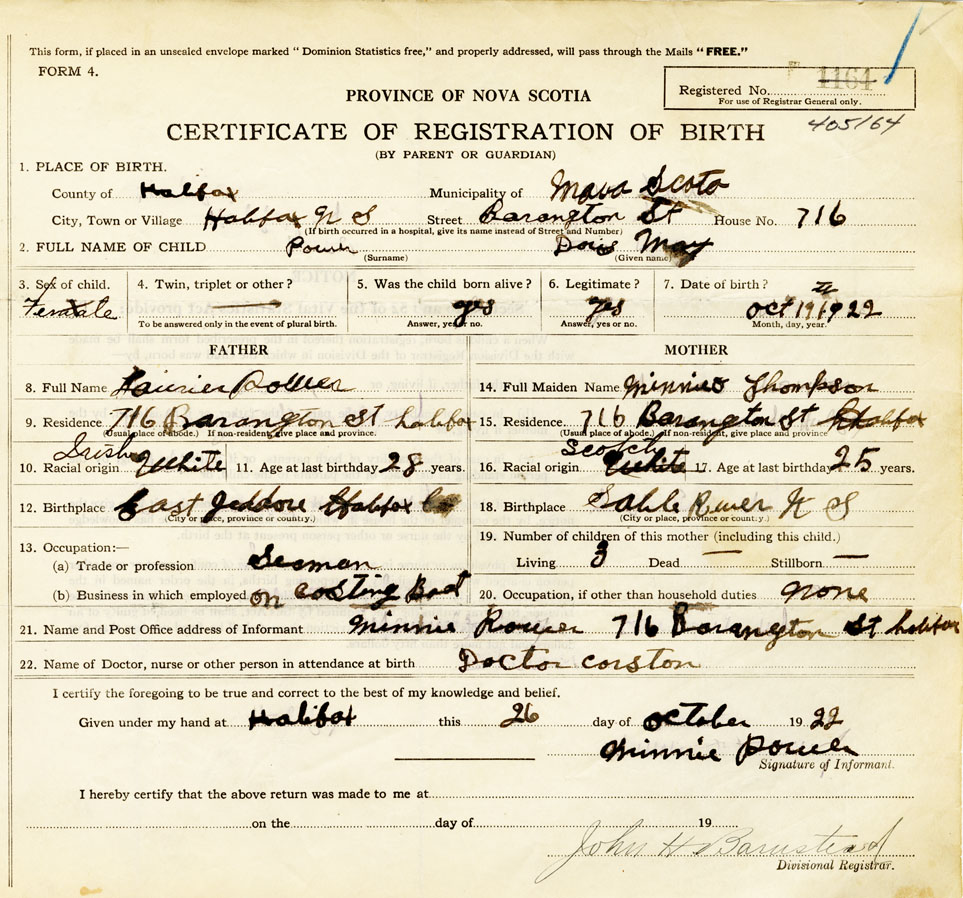 This form, if placed in an unsealed envelope marked “ Dominion Statistics free,” and properly addressed, will pass through the Mails “ FREE.”
FORM 4.
Registered No. 1164
For use of Registrar General only.
PROVINCE OF NOVA SCOTIA
405164
CERTIFICATE OF REGISTRATION OF BIRTH
(BY PARENT OR GUARDIAN)
1. PLACE OF BIRTH.
County of Halifax Municipality of Nova Scota
City, Town or Village Halifax N S Street Barangton St House No. 716
(If birth occurred in a hospital, give its name instead of Street and Number)
2. FULL NAME OF CHILD Power Doris May
(Surname) (Given name)
3. Sex of child. 4. Twin, triplet or other? 5. Was the child born alive? 6. Legitimate? 7. Date of birth?
Female yes yes oct 19 1922
To be answered only in the event of plural birth. Answer, yes or no. Answer, yes or no. Month, day, year.
FATHER MOTHER
8. Full Name Power 14. Full Maiden Name Minnie Thompson
9. Residence 716 Barangton St halifax 15. Residence 716 Barangton St Halifax
(Usual place of abode.) If non-resident, give place and province. (Usual place of abode.) If non-resident, give place and province
Irish Scotch
10. Racial origin White 11. Age at last birthday 28 years. 16. Racial origin White 17. Age at last birthday 25 years.
12. Birthplace East Jeddore Halifax Co 18. Birthplace Sable River N S
(City or place, province or country.) (City or place, province or country.)
13. Occupation:— 19. Number of children of this mother (including this child.)
(a) Trade or profession Seaman Living 3 Dead — Stillborn —
(b) Business in which employed on costing Boat 20. Occupation, if other than household duties none
21. Name and Post Office address of Informant Minnie Power 716 Barangton St halifax
22. Name of Doctor, nurse or other person in attendance at birth Doctor corston
I certify the foregoing to be true and correct to the best of my knowledge and belief.
Given under my hand at Halifax this 26 day of october 1922
Minnie Power
Signature of Informant.
I hereby certify that the above return was made to me at
on the day of 19
John H Barnstead
Divisional Registrar.